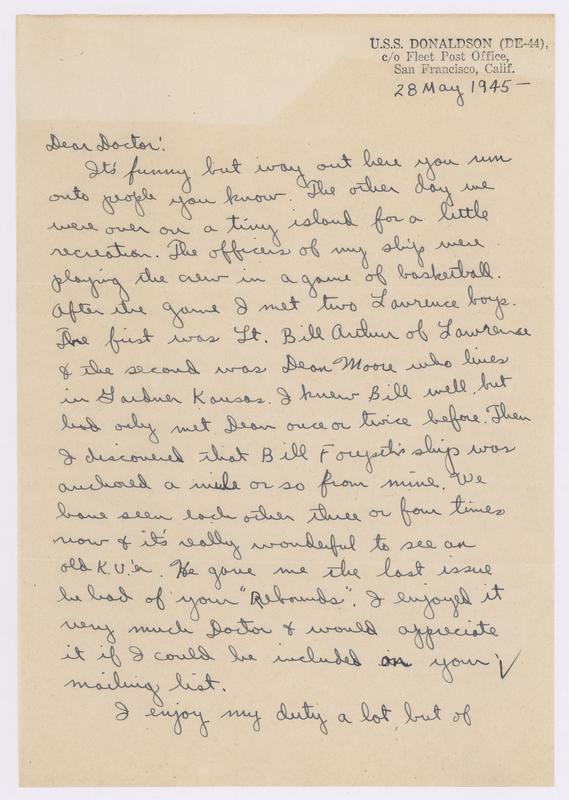 U.S.S. DONALDSON (DE-44),
c/o Fleet Post Office,
San Francisco, Calif.
28 May 1945 —
Dear Doctor:
It's funny but way out here you run
onto people you know. The other day we
were over on a tiny island for a little
recreation. The officers of my ship were
playing the crew in a game of basketball.
After the game I met two Lawrence boys.
The first was Lt. Bill Arthur of Lawrence
& the second was Dean Moore who lives
in Gardner Kansas. I knew Bill well but
had only met Dean once or twice before. Then
I discovered that Bill Forsyth's ship was
anchored a mile or so from mine. We
have seen each other three or four times
now & it's really wonderful to see an
old K.U.'er. He gave me the last issue
he had of your "Rebounds". I enjoyed it
very much Doctor & would appreciate
it if I could be included on your √
mailing list.
I enjoy my duty a lot, but of